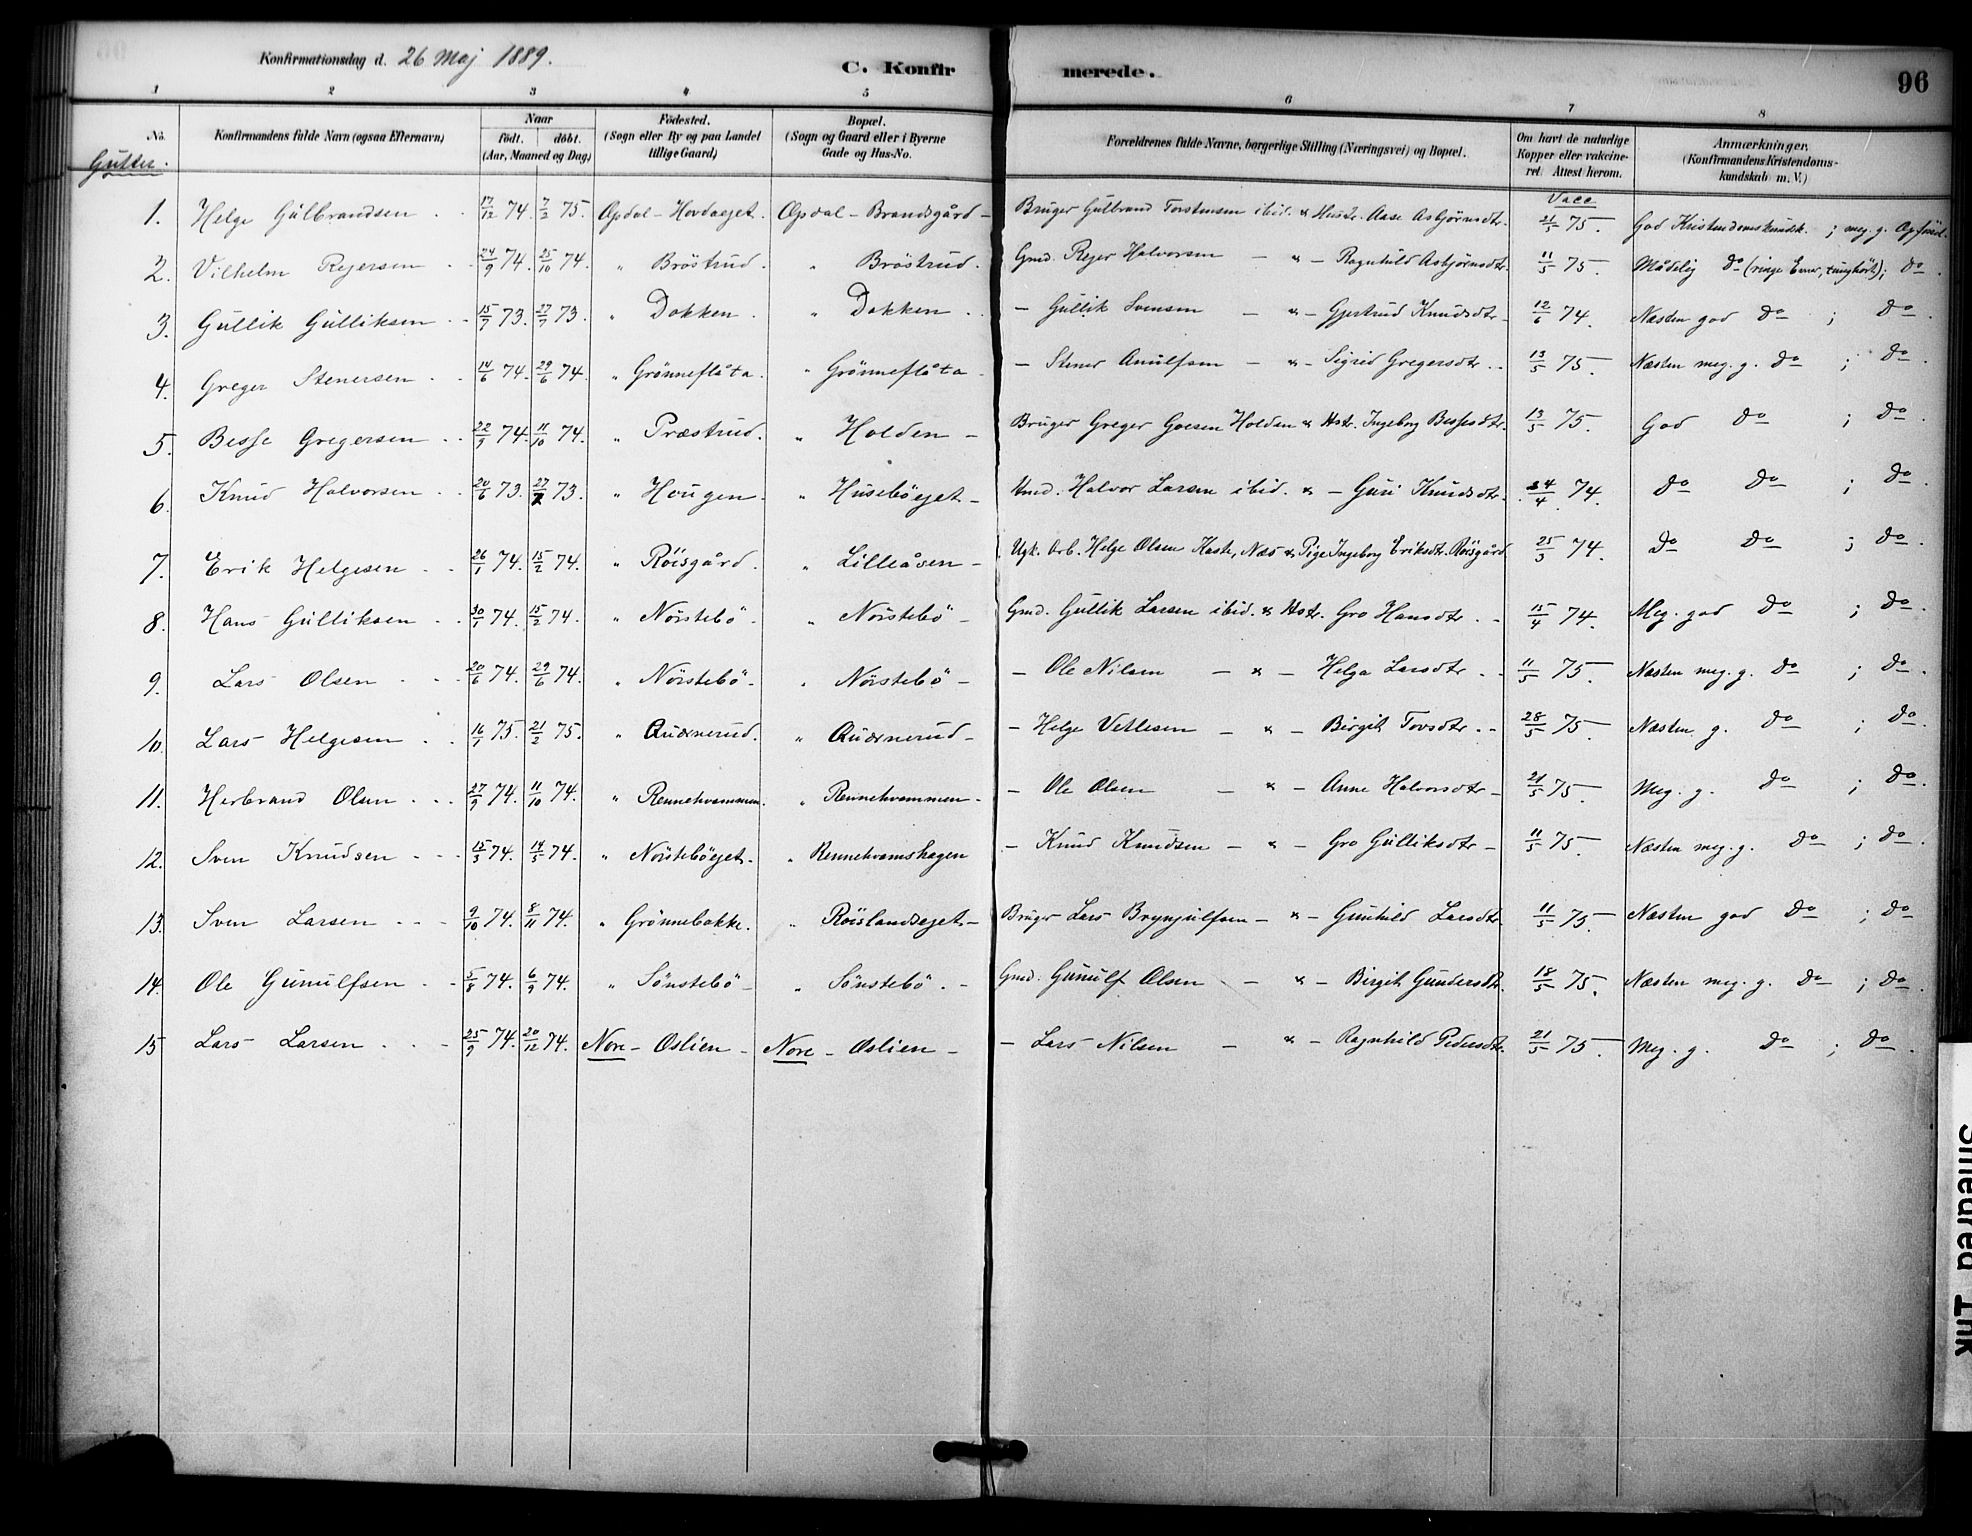 Konfirmationsdag d. 26 Maj 1889.
C. Konfirmerede.
96
1 2 3 4 5 6 7 8
No.
Konfirmandens fulde Navn (ogsaa Efternavn)
Naar
födt. döbt.
(Aar, Maaned og Dag)
Födested.
(Sogn eller By og paa Landet
tillige Gaard)
Bopæl.
(Sogn og Gaard eller i Byerne
Gade og Hus-No.
Forældrenes fulde Navne, borgerlige Stilling (Næringsvei) og Bopæl.
Om havt de naturlige
Kopper eller vakcine-
ret. Attest herom.
Anmærkninger.
(Konfirmandens Kristendoms-
kundskab m. V.)
Gutter.
Vacc
1. Helge Gulbrandsen 17/12 74. 7/2 75. Opdal - Hovdaejet. Opdal - Brandsgård - Bruger Gulbrand Torstensen ibid. & Hustr. Aase Asbjørnsdtr. 21/5 75. God Kristendomskundsk. ; meg. g. Opførsel.
2. Vilhelm Rejersen 24/9 74. 25/10 74. " Bröstrud. " Bröstrud. Gmd. Rejer Halvorsen - & - Ragnhild Asbjørnsdtr. 11/5 75. Mådelig do (ringe Evner, tunghørt); do.
3. Gullik Gulliksen 15/7 73. 27/7 73. " Dokken. " Dokken. - Gullik Svensen - & - Gjertrud Knudsdtr. 12/6 74. Næsten god do ; do.
4. Greger Stenersen 14/6 74. 29/6 74. " Grönneflåta. " Grönneflåta - - Stener Anulfsen - & - Sigrid Gregersdtr. 13/5 75. Næsten meg. g. do ; do.
5. Besse Gregersen 22/9 74. 11/10 74. " Præstrud. " Holden - Bruger Greger Goesen Holden & Hstr. Ingeborg Bessesdtr. 13/5 75. God do ; do.
6. Knud Halvorsen 20/6 73. 27/7 73. " Hougen. " Husebøejet - Halvor Larsen ibid. & - Guri Knudsdtr. 24/4 74. do do ; do.
7. Erik Helgesen 26/1 74. 15/2 74. " Röisgård. " Lilleåsen - Ugk. Arb. Helge Olsen Næs & Pige Ingeborg Eriksdtr. Röisgård 25/3 74. do do ; do.
8. Hans Gulliksen 30/1 74. 15/2 74. " Nörstebö. " Nörstebö - Gmd. Gullik Larsen ibid. & Hstr. Gro Hansdtr. 15/4 74. Meg. god do ; do.
9. Lars Olsen 20/6 74. 29/6 74. " Nörstebö - " Nörstebö - - Ole Nilsen - & - Helga Larsdtr. 11/5 75. Næsten meg. g. do ; do.
10. Lars Helgesen 16/1 75. 21/2 75. " Quærnerud. " Quærnerud - - Helge Vetlesen - & - Birgit Tovsdtr. 28/5 75. Næsten g. do ; do.
11. Herbrand Olsen 27/9 74. 11/10 74. " Rennehvammen. " Rennehvammen - - Ole Olsen - & - Anne Halvorsdtr - 21/5 75. Meg. g. do ; do.
12. Sven Knudsen 15/3 74. 14/5 74. " Nörstebøejet. " Rennehvamshagen - Knud Knudsen - & - Gro Gulliksdtr - 11/5 75. Næsten meg. g. do ; do.
13. Sven Larsen 9/10 74. 8/11 74. " Grönnebakke. " Röislandsejet - Bruger Lars Brynjulfsen - & - Gunhild Larsdtr. 11/5 75. Næsten god do ; do
14. Ole Gunulfsen 5/8 74. 6/9 74. " Sönstebö - " Sönstebö. - Gmd. Gunulf Olsen - & - Birgit Gundersdtr. 18/5 75. Næsten meg. g. do ; do.
15 Lars Larsen 25/9 74. 20/12 74. Nore - Oslien - Nore - Oslien - - Lars Nilsen - & - Ragnhild Pedersdtr. 21/5 75. Meg. g. do ; do.
Smeared Ink